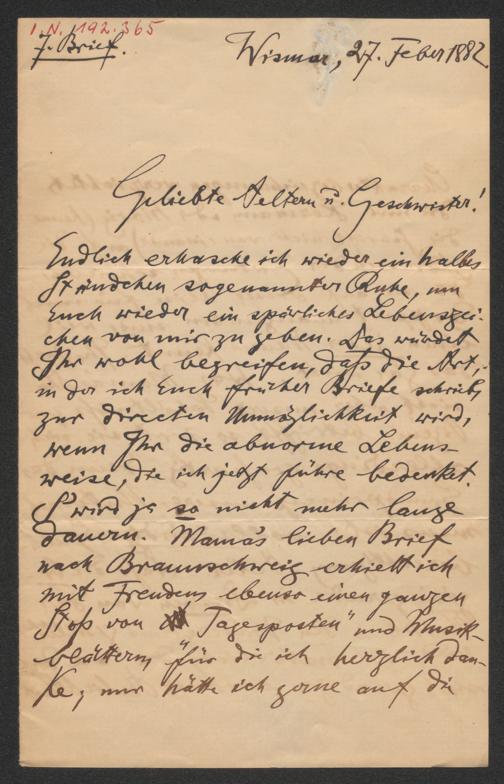 I.N. 192.365
7. Brief.
Wismar, 27. Feber 1882.
Geliebte Aeltern u. Geschwister!
Endlich erhasche ich wieder ein halbes
Stündchen sogenannter Ruhe, um
Euch wieder ein spärliches Lebenszei-
chen von mir zu geben. Das würdet
Ihr wohl begreifen, daß die Art,
in der ich Euch früher Briefe schrieb,
zur directen Unmöglichkeit wird,
wenn Ihr die abnorme Lebens-
weise, die ich jetzt führe bedenket.
S'wird ja so nicht mehr lange
dauern. Mama's lieben Brief
nach Braunschweig erhielt ich
mit Freuden, ebenso einen ganzen
Stoß von "Tagesposten" und Musik-
blättern, für die ich herzlich dan-
ke; nur hätte ich gerne auf die